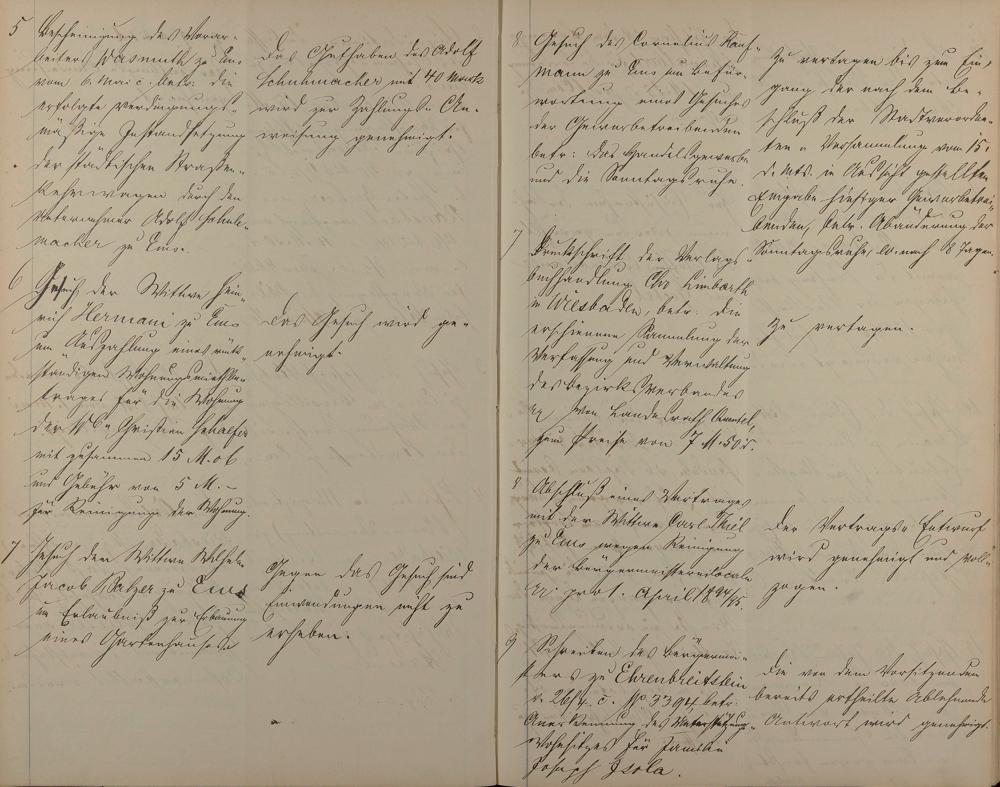 5 Bescheinigung des Vorar-
beiters Wasmuth zu Ems
vom 6. Mai c. betr. die
erfolgte verdingungs-
mäßige Instandsetzung
der städtischen Straßen-
Kehrwagen durch den
Unternehmer Adolf Schuh-
macher zu Ems.
Das Guthaben des Adolf
Schuhmacher mit 40 Mark
wird zur Zahlungs-An-
weisung genehmigt.
6 Gesuch der Wittwe Hein-
rich Hermani zu Ems
um Auszahlung eines rück-
ständigen Wohnungsmiethbe-
trages für die Wohnung
der Christian
mit zusammen 15 M. ob
und Gebühr von 5 M. –
zur Reinigung der Wohnung.
Das Gesuch wird ge-
nehmigt.
7 Gesuch der Wittwe Wilhelm
Jacob Balzer zu Ems
um Erlaubniß zur Erbauung
eines Gartenhauses
Gegen das Gesuch sind
Einwendungen nicht zu
erheben.
8 Gesuch des Cornelius Kauf-
mann zu Ems um Befür-
wortung eines Gesuches
der Gewerbetreibenden
betr: das Handelsgewerbe
und die Sonntagsruhe.
Zu vertagen bis zum Ein-
gang der nach dem Be-
schluß der Stadtverordne-
ten-Versammlung vom 15.
d. Mts. in Aussicht gestellten
Eingabe hiesiger Gewerbetrei-
benden, betr. Abänderung der
Sonntagsruhe, nach 8 Tagen.
7 Druckschrift der Verlags-
buchhandlung Chr Limbarth
in Wiesbaden, betr. die
erschienene Sammlung der
Verfassung und Verwaltung
des Bezirksverbandes
von Landesrath
zum Preise von 7 M. 50
Zu vertagen.
8 Abschluß eines Vertrages
mit der Wittwe Carl Thiel
zu Ems wegen Reinigung
der Bürgermeistereilocale
pro 1. April 1894/95
Der Vertrags-Entwurf
wird genehmigt und voll-
zogen.
9 Schreiben des Bürgermei-
sters zu Ehrenbreitstein
v. 26/4. c. No 3394, betr.
Anerkennung des Unterstützungs-
Wohnsitzes für Familie
Joseph Isola.
Die von dem Vorsitzenden
bereits ertheilte ablehnende
Antwort wird genehmigt.